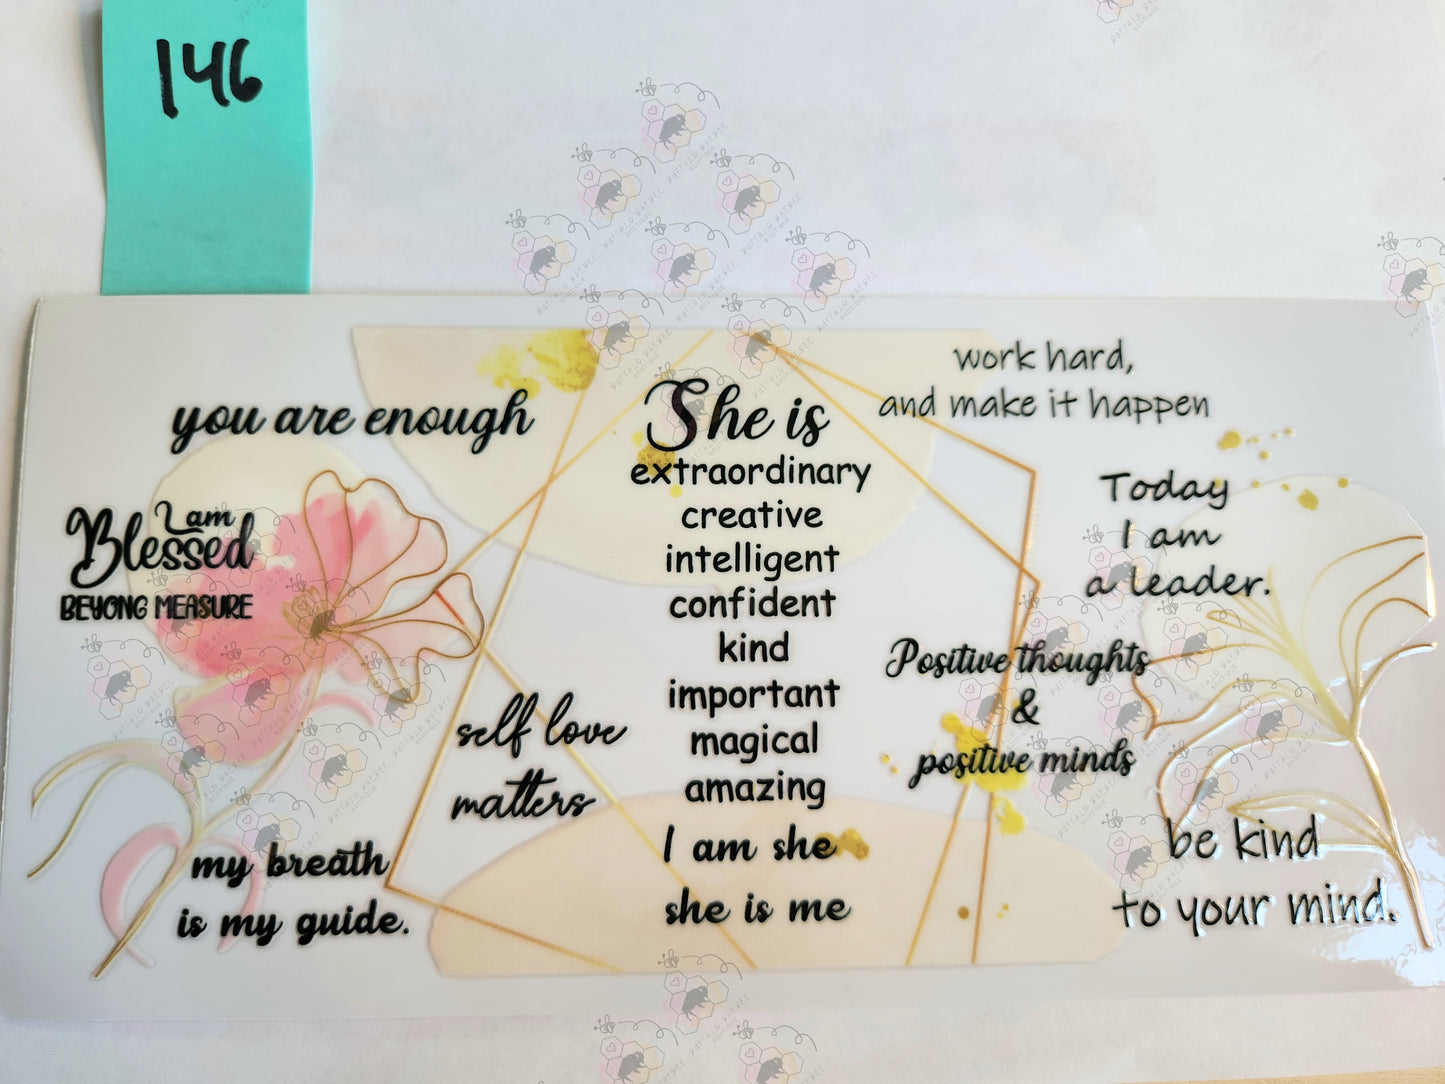 146
you are enough
I am
Blessed
BEYONG MEASURE
self love
matters
my breath
is my guide.
She is
extraordinary
creative
intelligent
confident
kind
important
magical
amazing
I am she
she is me
work hard,
and make it happen
Today
I am
a leader.
Positive thoughts
&
positive minds
be kind
to your mind.
BUFFALO BARBEE
BOUTIQUE